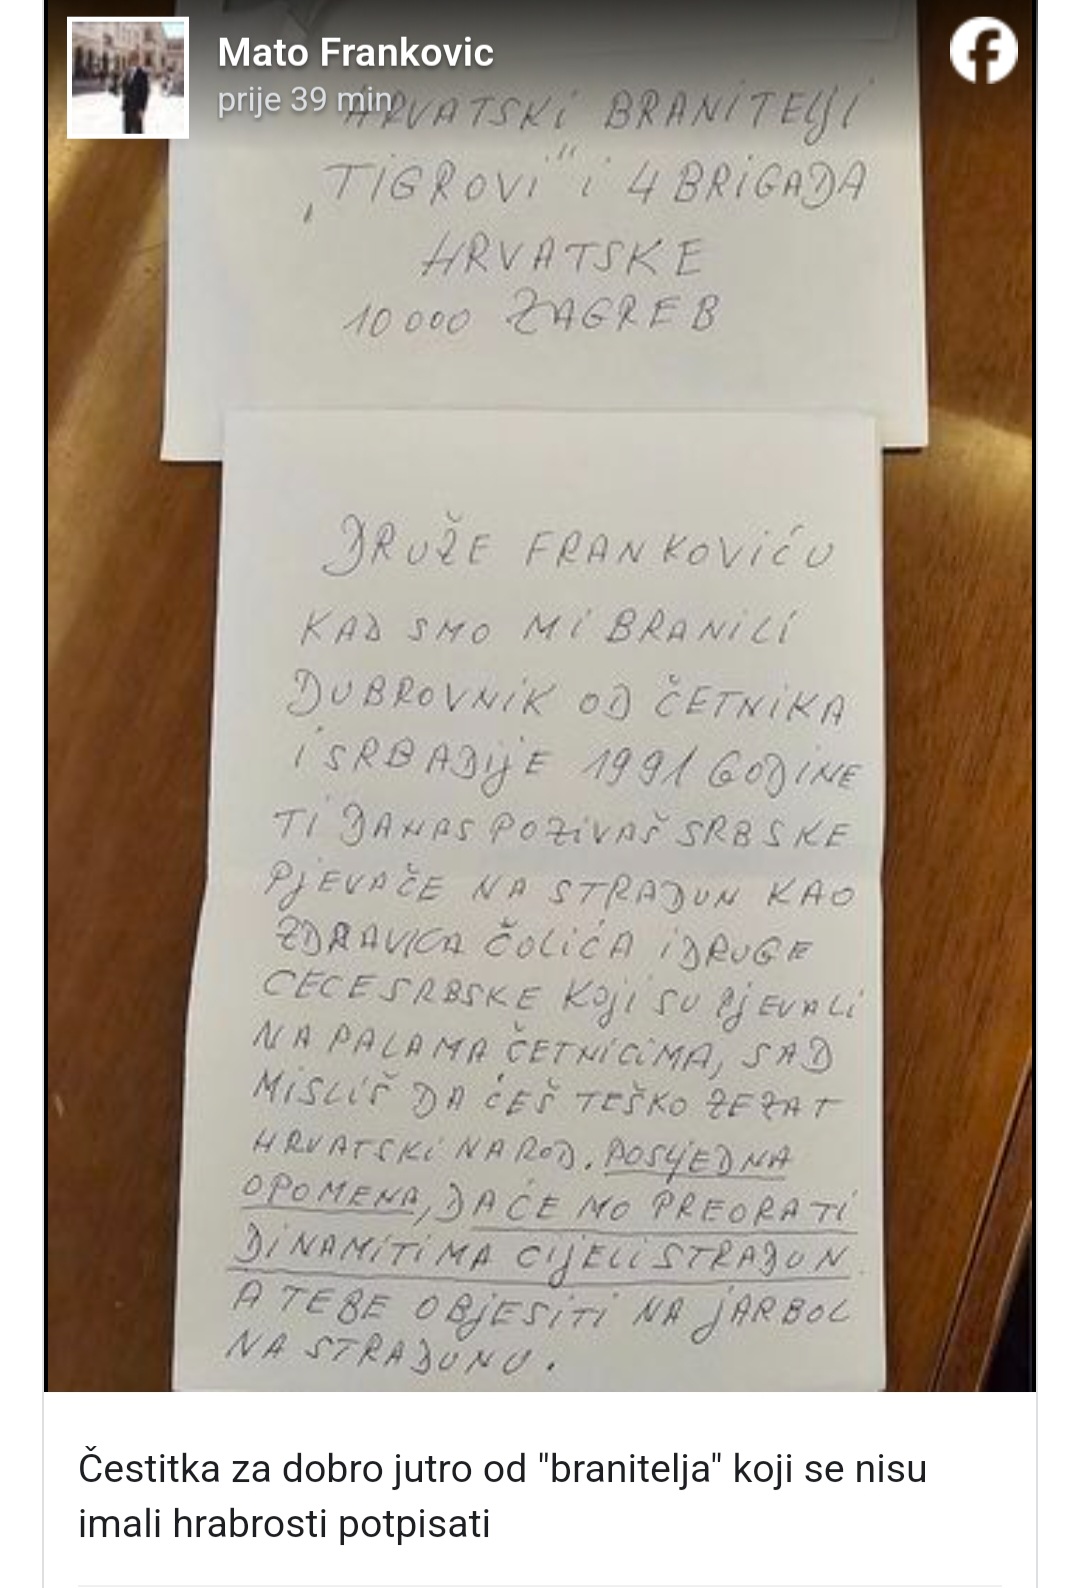 Mato Frankovic
prije 39 min
HRVATSKI BRANITELJI
"TIGROVI" i 4 BRIGADA
HRVATSKE
10000 ZAGREB
DRUŽE FRANKOVIĆU
KAD SMO MI BRANILI
DUBROVNIK OD ČETNIKA
I SRBADIJE 1991 GODINE
TI DANAS POZIVAŠ SRBSKE
PJEVAČE NA STRADUN KAO
ZDRAVICA ČOLIĆA I DRUGE
CECE SRBSKE KOJI SU PJEVALI
NA PALAMA ČETNICIMA, SAD
MISLIŠ DA ĆEŠ TEŠKO ZEZAT
HRVATSKI NAROD. POSLJEDNA
OPOMENA, DA ĆE MO PREORATI
DINAMITIMA CIJELI STRADUN
A TEBE OBJESITI NA JARBOL
NA STRADUNU.
Čestitka za dobro jutro od "branitelja" koji se nisu
imali hrabrosti potpisati